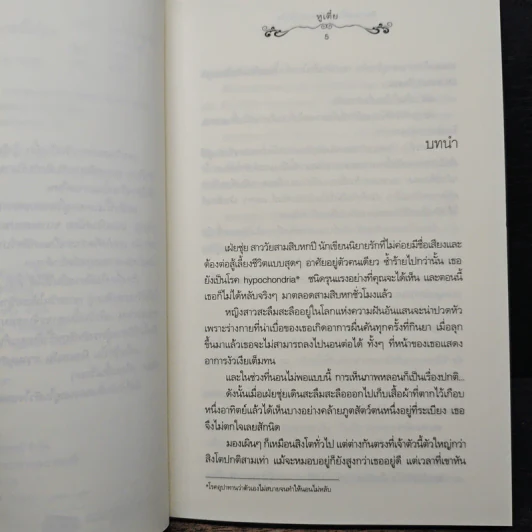 ซูเตี๋ย
5
บทนำ
เฝ่ยชุ่ย สาววัยสามสิบหกปี นักเขียนนิยายรักที่ไม่ค่อยมีชื่อเสียงและ
ต้องต่อสู้เลี้ยงชีวิตแบบสุดๆ อาศัยอยู่ตัวคนเดียว ซ้ำร้ายไปกว่านั้น เธอ
ยังเป็นโรค hypochondria* ชนิดรุนแรงอย่างที่คุณจะได้เห็น และตอนนี้
เธอก็ไม่ได้หลับจริงๆ มาตลอดสามสิบหกชั่วโมงแล้ว
หญิงสาวสะลึมสะลืออยู่ในโลกแห่งความฝันอันแสนจะน่าปวดหัว
เพราะร่างกายที่น่าเบื่อของเธอเกิดอาการผื่นคันทุกครั้งที่กินยา เมื่อลุก
ขึ้นมาแล้วเธอจะไม่สามารถลงไปนอนต่อได้ ทั้งๆ ที่หน้าของเธอแสดง
อาการง่วงเงียเต็มทน
และในช่วงที่นอนไม่พอแบบนี้ การเห็นภาพหลอนก็เป็นเรื่องปกติ...
ดังนั้นเมื่อเฝ่ยชุ่ยเดินสะลึมสะลือออกไปเก็บเสื้อผ้าที่ตากไว้เกือบ
หนึ่งอาทิตย์แล้วได้เห็นบางอย่างคล้ายภูตสัตว์ตนหนึ่งอยู่ที่ระเบียง เธอ
จึงไม่ตกใจเลยสักนิด
มองเผินๆ ก็เหมือนสิงโตทั่วไป แต่ต่างกันตรงที่เจ้าตัวนี้ตัวใหญ่กว่า
สิงโตปกติสามเท่า แม้จะหมอบอยู่ก็ยังสูงกว่าเธออยู่ดี แต่เวลาที่เขาหัน
*โรคอุปาทานว่าตัวเองไม่สบายจนทำให้นอนไม่หลับ